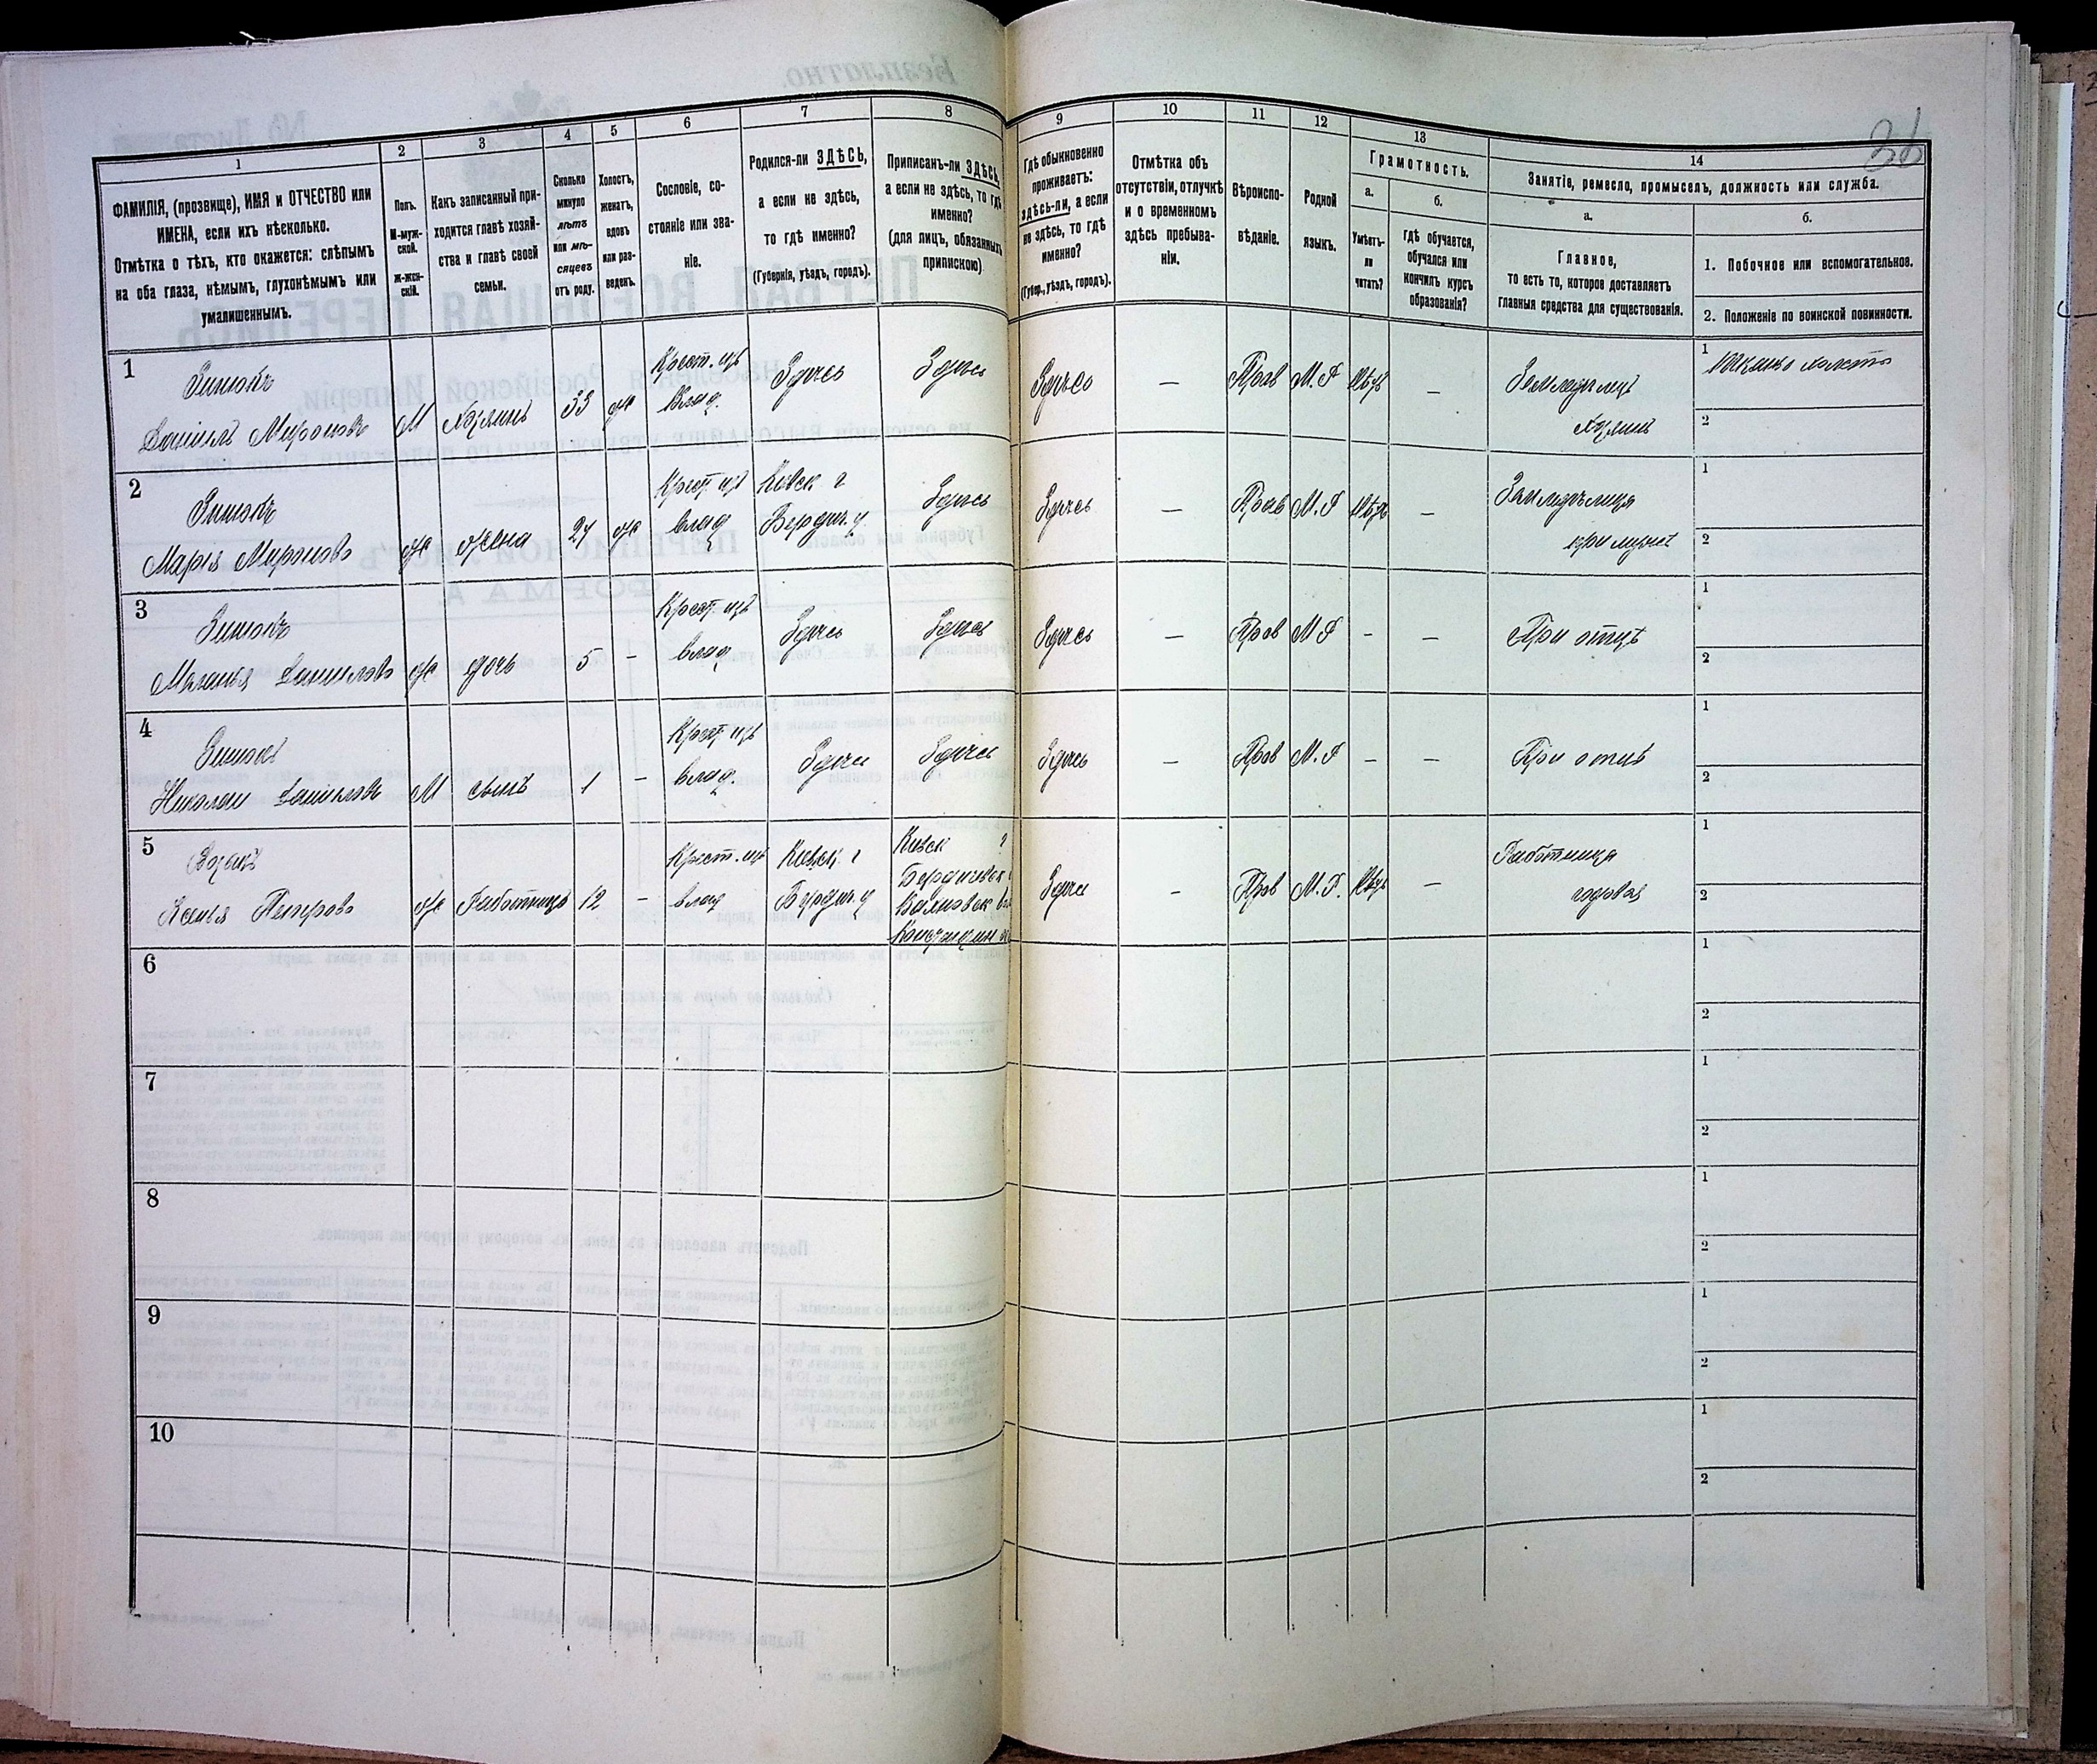 36
1
ФАМИЛІЯ, (прозвище), ИМЯ и ОТЧЕСТВО или
ИМЕНА, если ихъ нѣсколько.
Отмѣтка о тѣхъ, кто окажется: слѣпымъ
на оба глаза, нѣмымъ, глухонѣмымъ или
умалишеннымъ.
2
Полъ.
М-муж-
ской.
Ж-жен-
скій.
3
Какъ записанный при-
ходится главѣ хозяй-
ства и главѣ своей
семьи.
4
Сколько
минуло
лѣтъ
или мѣ-
сяцевъ
отъ роду.
5
Холостъ,
женатъ,
вдовъ
или раз-
веденъ.
6
Сословіе, со-
стояніе или зва-
ніе.
7
Родился-ли ЗДѢСЬ,
а если не здѣсь,
то гдѣ именно?
(Губернія, уѣздъ, городъ).
8
Приписанъ-ли ЗДѢСЬ,
а если не здѣсь, то гдѣ
именно?
(для лицъ, обязанныхъ
припискою)
9
Гдѣ обыкновенно
проживаетъ:
здѣсь-ли, а если
не здѣсь, то гдѣ
именно?
(Губер., уѣздъ, городъ).
10
Отмѣтка объ
отсутствіи, отлучкѣ
и о временномъ
здѣсь пребыва-
ніи.
11
Вѣроиспо-
вѣданіе.
12
Родной
языкъ.
13
Грамотность.
а.
Умѣетъ-
ли
читать?
б.
Гдѣ обучается,
обучался или
кончилъ курсъ
образованія?
14
Занятіе, ремесло, промыселъ, должность или служба.
а.
Главное,
то есть то, которое доставляетъ
главныя средства для существованія.
б.
1. Побочное или вспомогательное.
2. Положеніе по воинской повинности.
1
Зинюкъ
Даніилъ Мироновъ
М
Хозяинъ
33
ж
Крест. изъ
влад.
Здѣсь
Здѣсь
Здѣсь
—
Прав
М.Р
—
Земледѣлецъ
хозяинъ
1
2
2
Зинюкъ
Марія Миронова
ж
жена
24
ж
Крест. изъ
влад
Кіевск г
Бердич. у.
Здѣсь
Здѣсь
—
Прав
М.Р
—
Земледѣлица
при мужѣ
1
2
3
Зинюкъ
Маланья Данилова
ж
дочь
5
-
Крест. изъ
влад
Здѣсь
Здѣсь
Здѣсь
—
Прав
М Р
-
—
При отцѣ
1
2
4
Зинюкъ
Николай Даниловъ
М
сынъ
1
-
Крест. изъ
влад.
Здѣсь
Здѣсь
Здѣсь
—
Прав
М.Р
—
—
При отцѣ
1
2
5
Козакъ
Ксенья Петрова
ж
Работница
12
-
Крест. изъ
влад
Кіевск. г
Бердич. у
Кіевск г
Бердичевск
Здѣсь
-
Прав
М.Р.
—
Работница
годовая
1
2
6
1
2
7
1
2
8
1
2
9
1
2
10
1
2